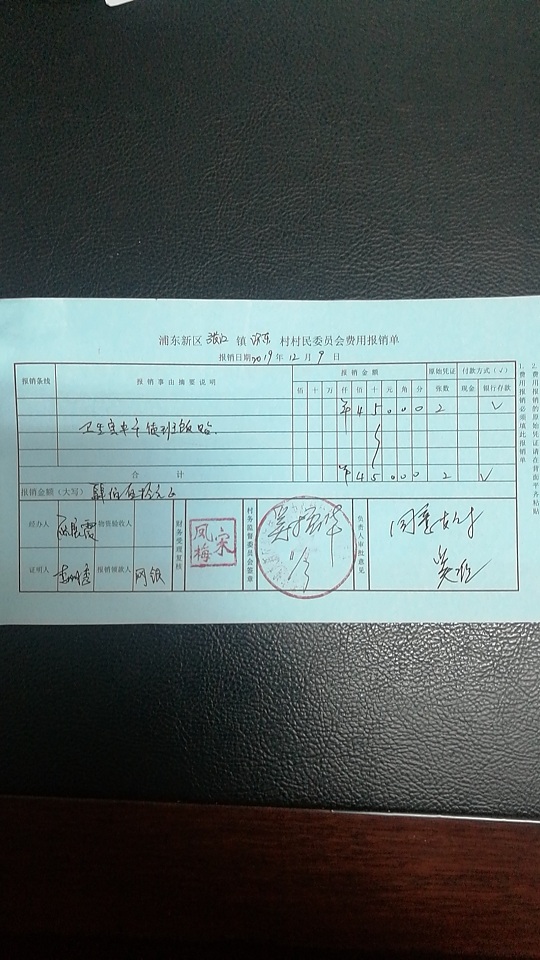 浦东新区 张江 镇 环东 村村民委员会费用报销单
报销日期2019年12月9日
报销条线 报销事由摘要说明 报销金额 原始凭证 付款方式(√)
佰 十 万 仟 佰 十 元 角 分 张数 现金 银行存款
卫生室中午值班饭贴. ¥ 4 5 0 0 0 2 √
合计 ¥ 4 5 0 0 0 2 √
报销金额(大写) 肆佰伍拾元正
经办人 物资验收人
财务受理复核
宋凤梅
村务监督委员会签章
负责人审批意见
同意支付
证明人 报销领款人 网银
1.费用报销必须填此报销单
2.费用报销的原始凭证请在背面平齐粘贴